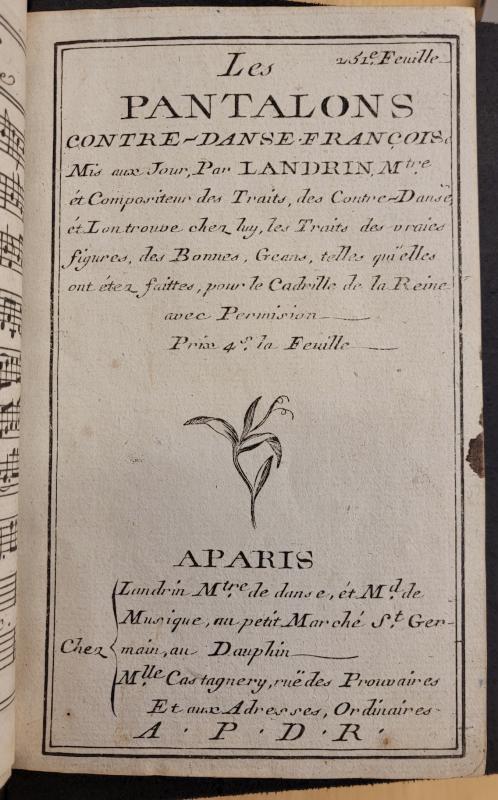 Les 251.e Feuille
PANTALONS
CONTRE-DANSE·FRANÇOISe
Mis aux Jour, Par LANDRIN, M.tre
ét Compositeur des Traits, des Contre-Danse,
ét Lon trouve chez luy, les Traits des vraies
figures, des Bonnes, Geans, telles qu'elles
ont étez faittes, pour le Cadrille de la Reine
avec Permision
Prix 4.s la Feuille
APARIS
Landrin M.tre de danse, ét M.d de
Musique, au petit Marché S.t Ger-
Chez main, au Dauphin
M.lle Castagnery, ruë des Prouvaires
Et aux Adresses, Ordinaires
A · P · D · R ·